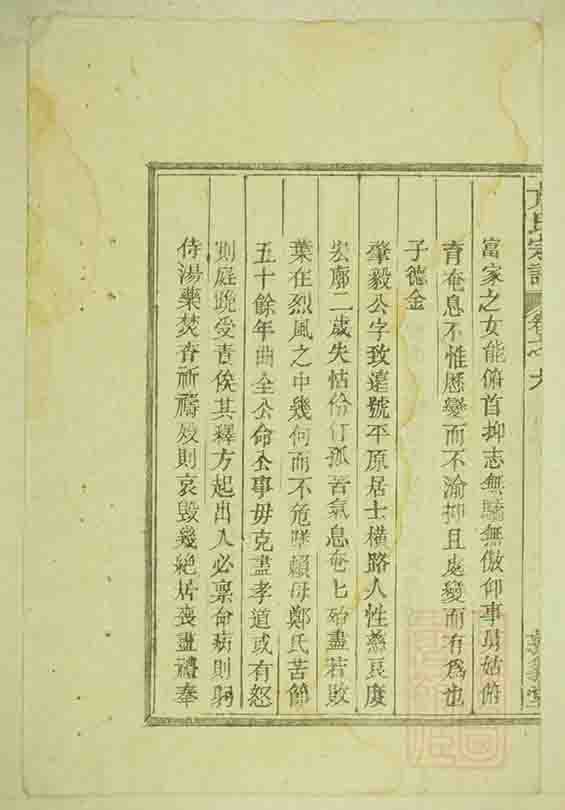 氏宗譜 卷之六
富家之女能俯首抑志無驕無傲仰事舅姑俯
育奄息不惟歷變而不渝抑且處變而有爲也
子德金
肇毅公字致遠號平原居士橫路人性慈良度
宏廓二歲失怙伶仃孤苦氣息奄七殆盡若敗
葉在烈風之中幾何而不危墜賴母鄭氏苦節
五十餘年曲全公命公事毋克盡孝道或有怒
則庭跪受責俟其釋方起出入必禀命病則躬
侍湯藥焚香祈禱歿則哀毀幾絕居喪盡禮奉